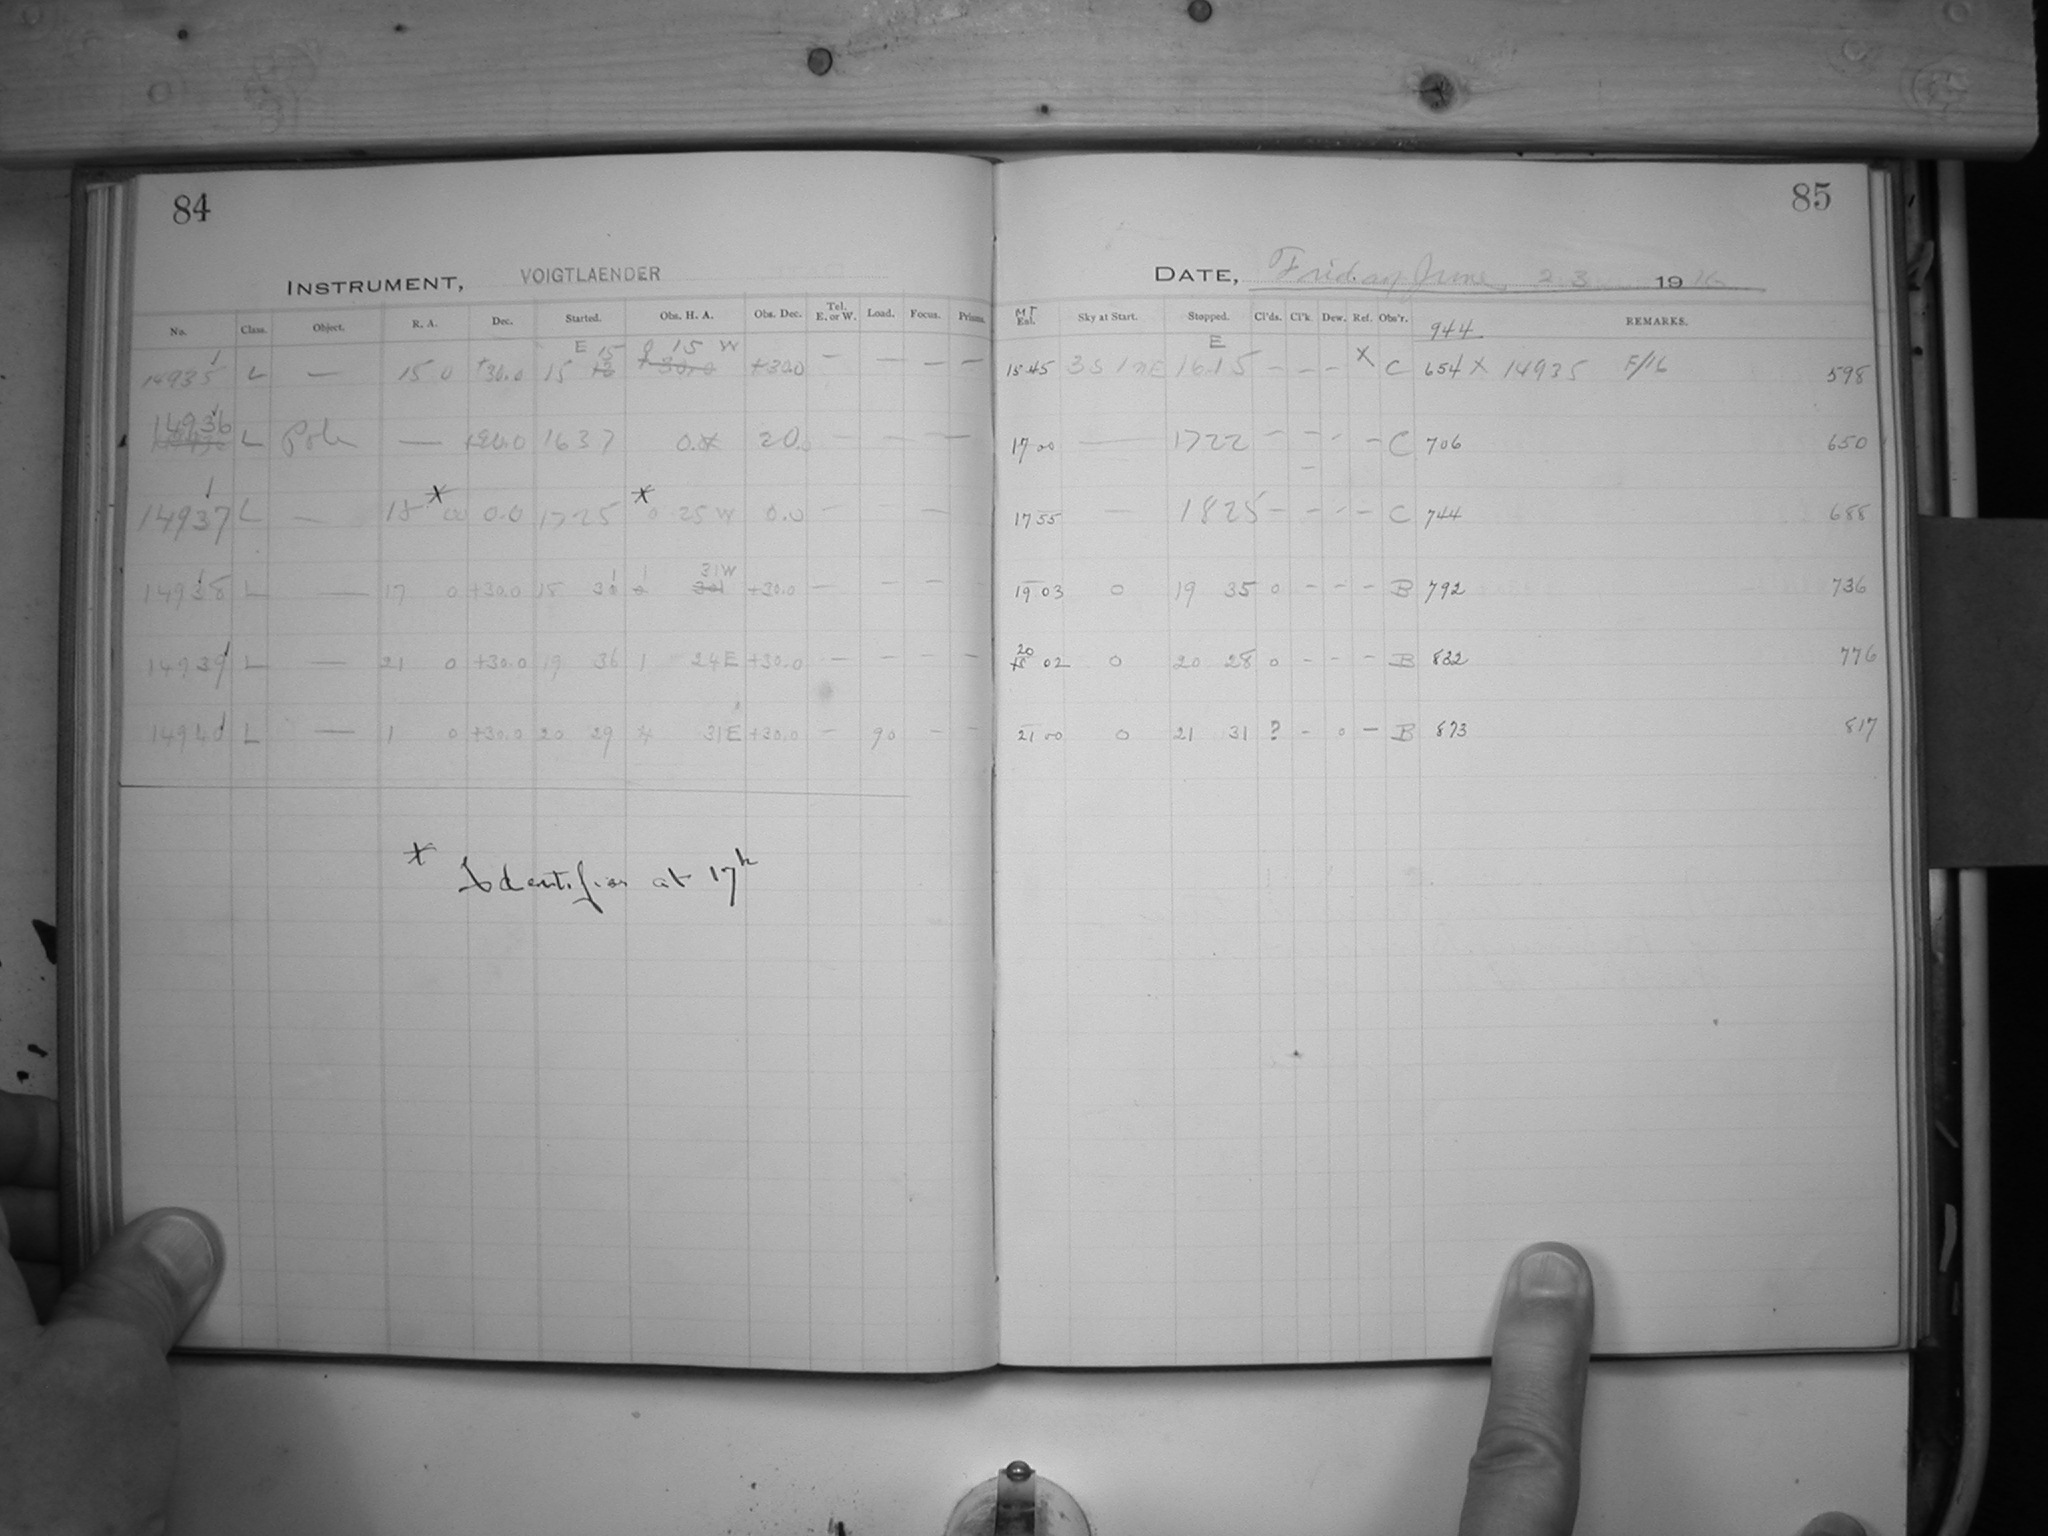 84
INSTRUMENT, VOIGTLAENDER
No. Class. Object. R. A. Dec. Started. Obs. H. A. Obs. Dec. Tel. E. or W. Load. Focus. Prisms.
E 15 0 15 W
14935 L — 15 0 +30.0 15 +30.0 — — — —
14936 L Pole — 1637 — — — —
14937 L — 00 0.0 1725 * 0 25 W 0.0 — — — —
1 1 31W
14938 L — 17 0 +30.0 +30.0 — — — —
14939 L — 21 0 +30.0 19 36 1 24E +30.0 — — — —
14940 L — 1 0 +30.0 20 29 4 31E +30.0 — 90 — —
* Identifies at 17h
85
DATE, Friday June 23 1916
MT Eql. Sky at Start. Stopped. Cl'ds. Cl'k. Dew. Ref. Obs'r. 944 REMARKS.
E
15 45 1615 — — — X C 654 X 14935 F/16 598
17 00 — 1722 — — — — C 706 650
17 55 — 1825 — — — — C 744 688
19 03 0 19 35 0 — — — B 792 736
20 02 0 20 28 0 — — — B 832 776
21 00 0 21 31 ? — 0 — B 873 817